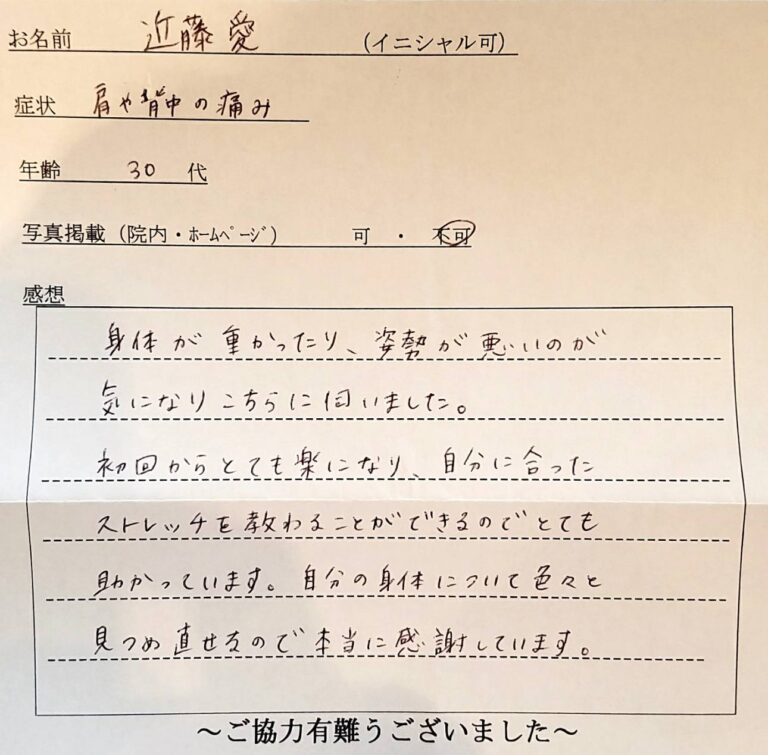 お名前 近藤愛 (イニシャル可)
症状 肩や背中の痛み
年齢 30 代
写真掲載 (院内・ﾎｰﾑﾍﾟｰｼﾞ) 可 ・ 不可
感想
身体が重かったり、姿勢が悪いのが
気になりこちらに伺いました。
初回からとても楽になり、自分に合った
ストレッチを教わることができるのでとても
助かっています。自分の身体について色々と
見つめ直せるので本当に感謝しています。
～ご協力有難うございました～